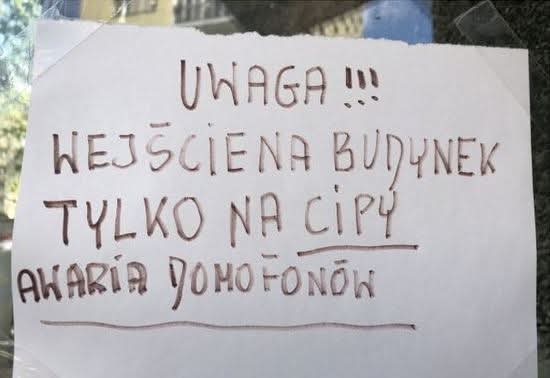 UWAGA !!!
WEJŚCIENA BUDYNEK
TYLKO NA CIPY
AWARIA DOMOFONÓW